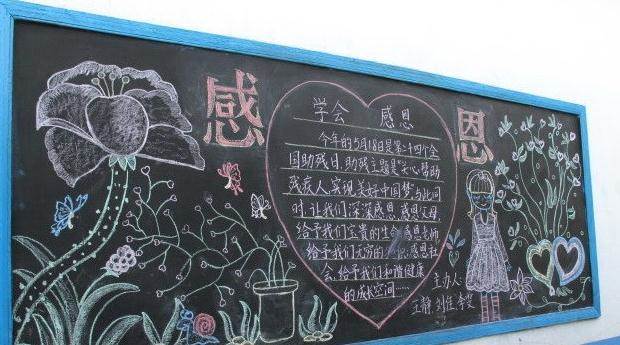 感 恩
学会 感恩
今年的5月18日是第二十四个全
国助残日,助残主题是“关心帮助
残疾人,实现美好中国梦”与此同
时,让我们深深感恩,感恩父母
给予我们宝贵的生命,感恩老师
给予我们无穷的知识,感恩社
会,给予我们和谐健康
的成长空间……
主办人:
王静,刘佳,李莹